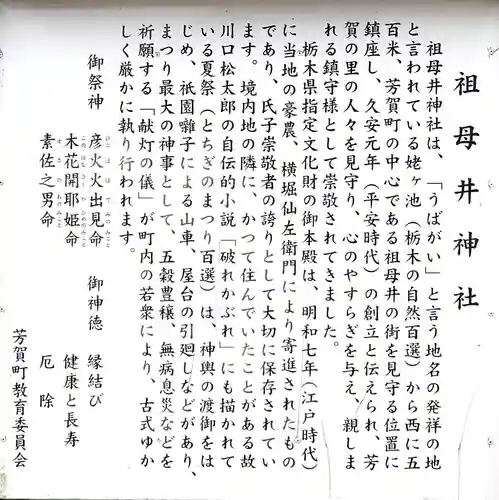 祖母井神社
祖母井神社は、「うばがい」と言う地名の発祥の地
と言われている姥ヶ池（栃木の自然百選）から西に五
百米、芳賀町の中心である祖母井の街を見守る位置に
鎮座し、久安元年（平安時代）の創立と伝えられ、芳
賀の里の人々を見守り、心のやすらぎを与え、親しま
れる鎮守様として崇敬されてきました。
栃木県指定文化財の御本殿は、明和七年（江戸時代）
に当地の豪農、横堀仙左衛門により寄進されたもの
であり、氏子崇敬者の誇りとして大切に保存されてい
ます。境内地の隣に、かつて住んでいたことがある故
川口松太郎の自伝的小説「破れかぶれ」にも描かれて
いる夏祭（とちぎのまつり百選）は、神輿の渡御をは
じめ、祇園囃子による山車、屋台の引廻しなどがあり、
まつり最大の神事として、五穀豊穣、無病息災などを
祈願する「献灯の儀」が町内の若衆により、古式ゆか
しく厳かに執り行われます。
御祭神 彦火火出見命 御神徳 縁結び
木花開耶姫命 健康と長寿
素佐之男命 厄除
芳賀町教育委員会